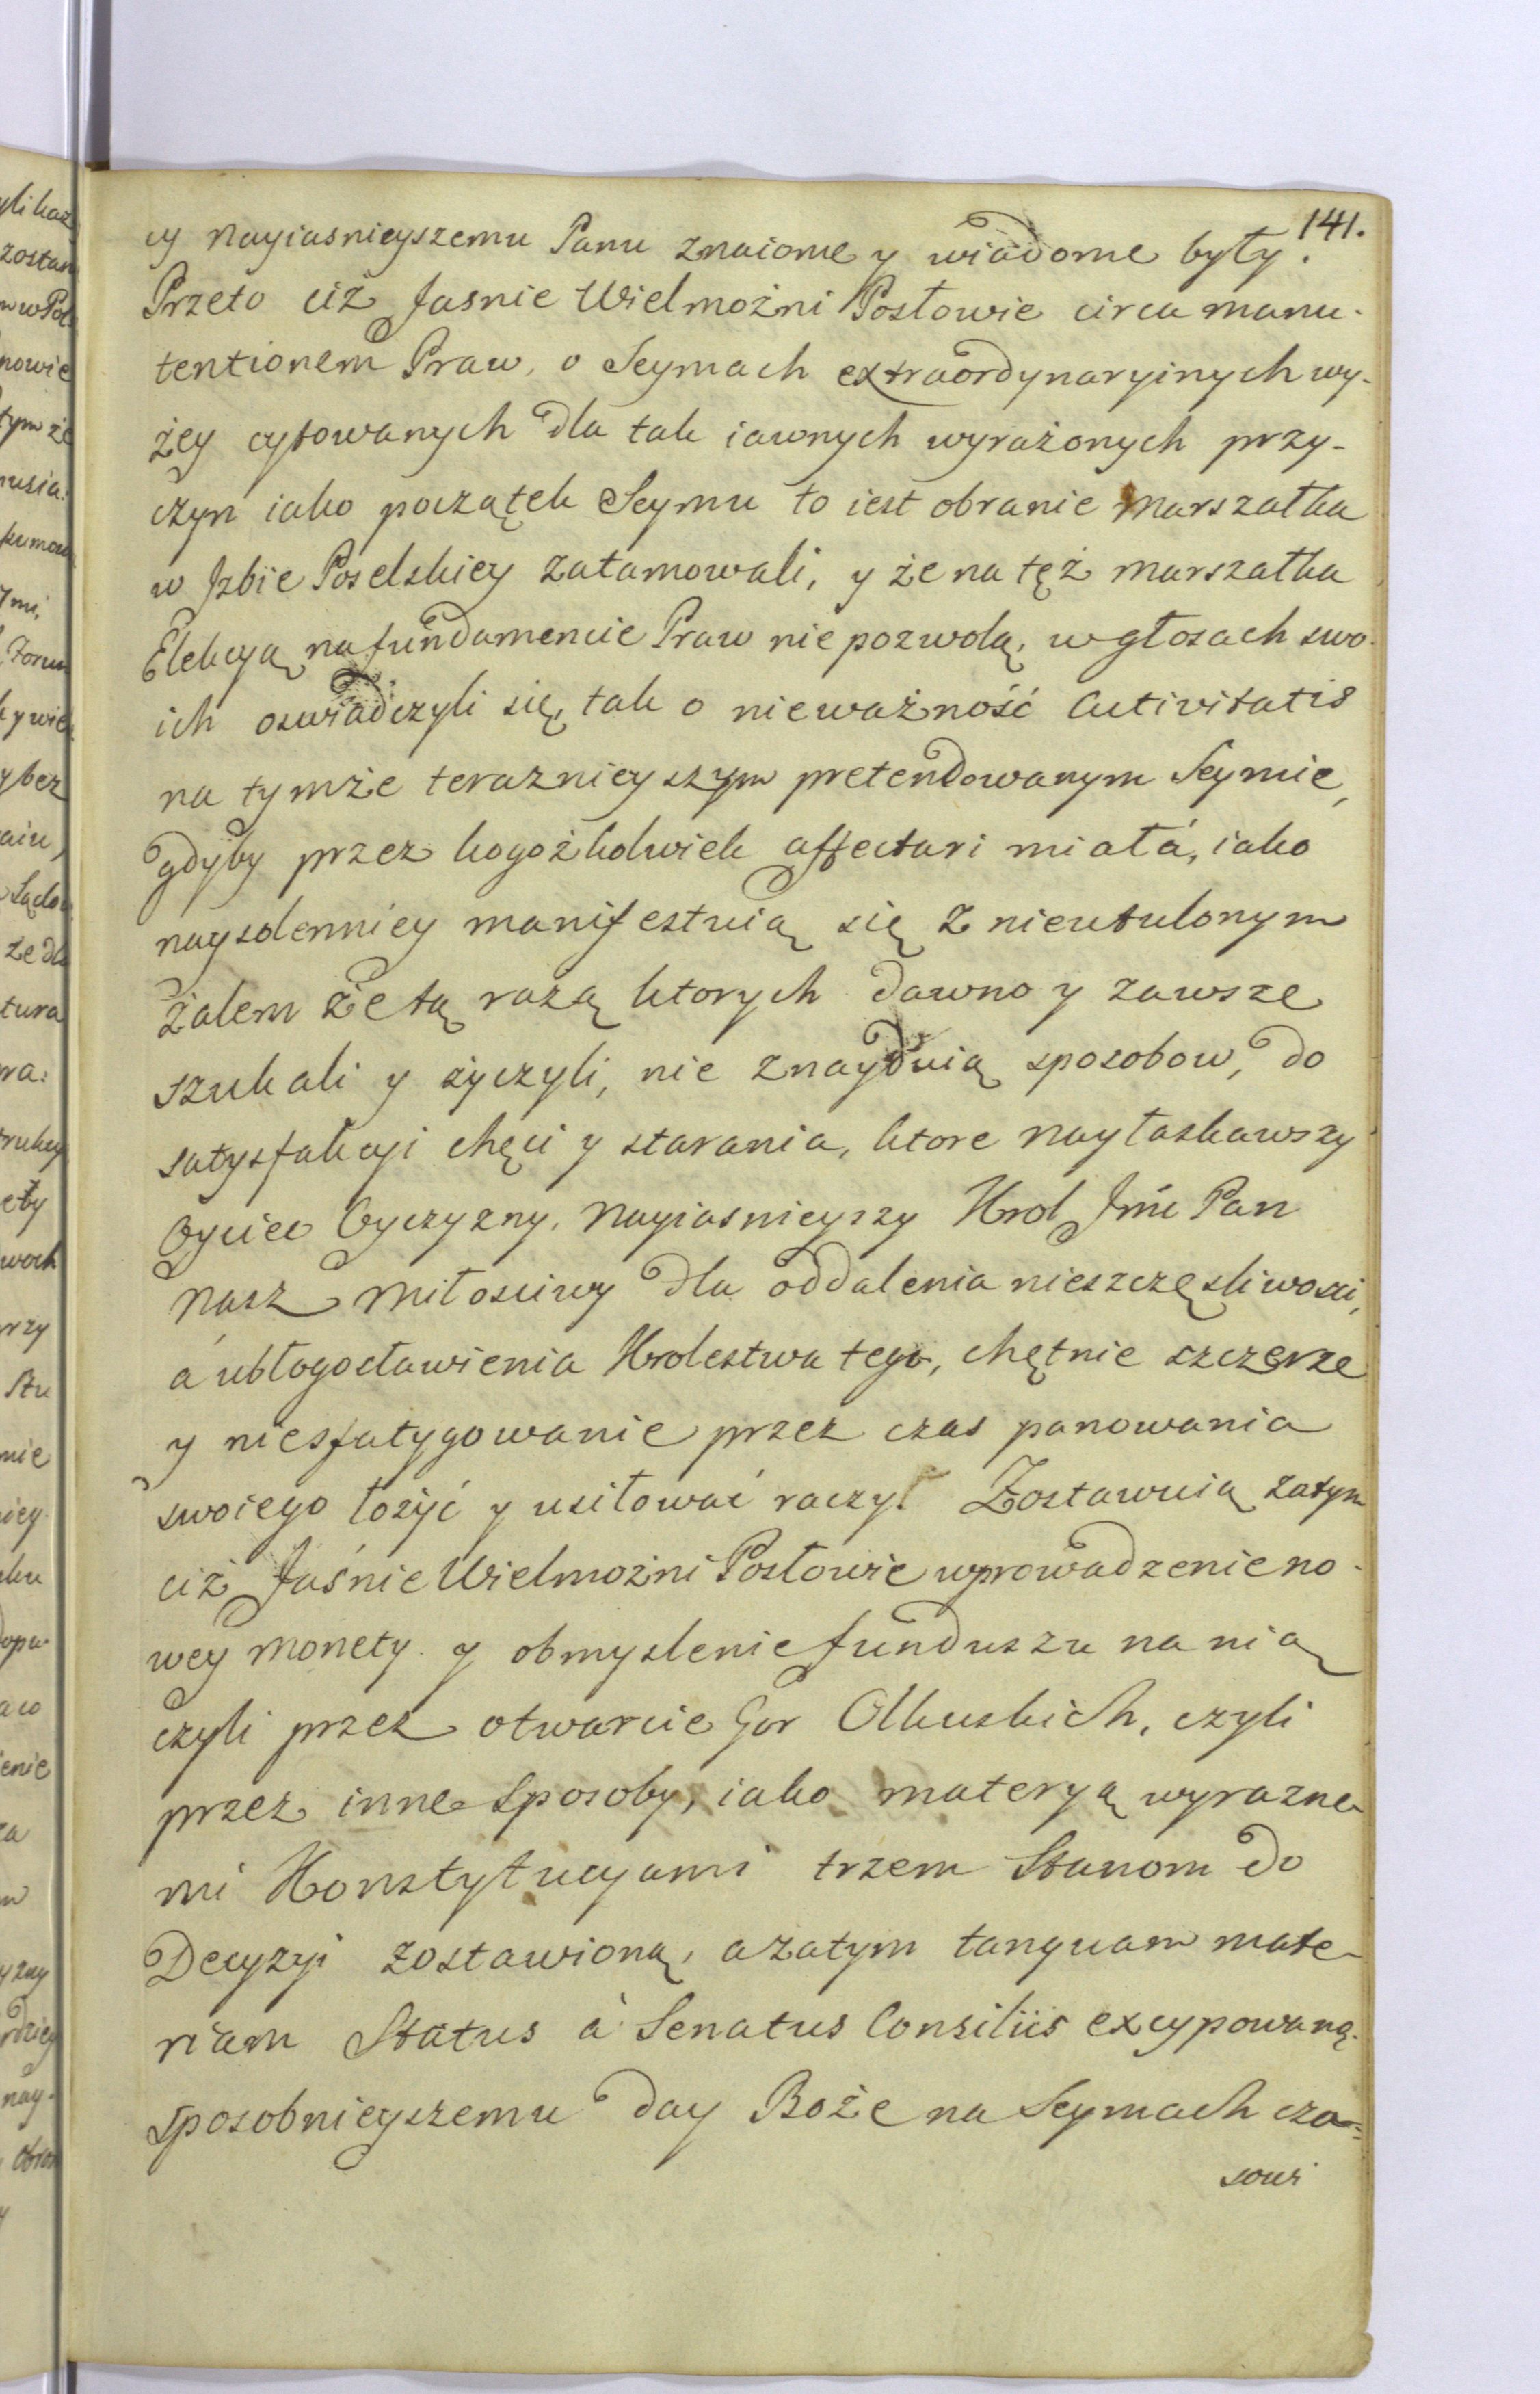 141.
cy Nayiasnieyszemu Panu znaiome y wiadome były.
Przeto ciż Jasnie Wielmożni Posłowie circa manu-
tentionem Praw, o Seymach extraordynaryinych wy-
żey cytowanych dla tak iawnych wyrażonych przy-
czyn iako początek Seymu to iest obranie Marszałka
w Jzbie Poselskiey zatamowali, y że na tęż Marszałka
Elekcyą na fundamencie Praw nie pozwolą, w głosach swo-
ich oswiadczyli się, tak o nieważność Activitatis
na tymże teraznieyszym pretendowanym Seymie,
gdyby przez kogożkolwiek affectari miała, iako
naysolenniey manifestuią się z nieutulonym
żalem że tą razą ktorych dawno y zawsze
szukali y życzyli, nie znayduią sposobow, do
satysfakcyi chęci y starania, ktore Nayłaskawszy
Oyciec Oyczyzny, Nayiasnieyszy Krol Jmć Pan
Nasz Miłosciwy dla oddalenia nieszczęsliwosci,
a ubłogosławienia Krolestwa tego, chętnie szczerze
y niesfatygowanie przez czas panowania
swoiego łożyć y usiłować raczył Zostawuią zatym
ciż Jaśnie Wielmożni Posłowie wprowadzenie no-
wey Monety y obmyslenie funduszu na nią
czyli przez otwarcie Gor Olkuskich, czyli
przez inne sposoby, iako materyą wyrazne-
mi Konstytucyami trzem Stanom do
Decyzyi zostawioną, a zatym tanquam mate-
riam Status à Senatus Consiliis excypowaną.
sposobnieyszemu day Boże na Seymach cza-
sowi